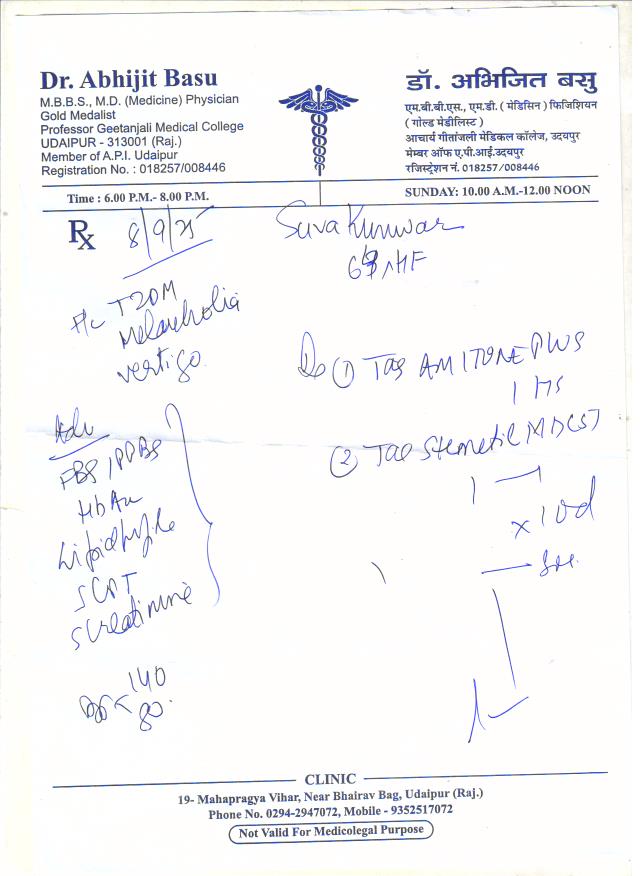 Dr. Abhijit Basu
M.B.B.S., M.D. (Medicine) Physician
Gold Medalist
Professor Geetanjali Medical College
UDAIPUR - 313001 (Raj.)
Member of A.P.I. Udaipur
Registration No. : 018257/008446
डॉ. अभिजित बसु
एम.बी.बी.एस., एम.डी. ( मेडिसिन ) फिजिशियन
( गोल्ड मेडीलिस्ट )
आचार्य गीतांजली मेडिकल कॉलेज, उदयपुर
मेम्बर ऑफ ए.पी.आई.उदयपुर
रजिस्ट्रेशन नं. 018257/008446
Time : 6.00 P.M.- 8.00 P.M.
SUNDAY: 10.00 A.M.-12.00 NOON
Rx 8/9/25
Kunwar
T2DM
Melancholia
vertigo
Adv
FBS / PPBS
HbA1c
Lipid profile
S Creatinine
140
80
① Tab AMITONE PLUS
1 HS
② Tab Stemetil MD (5)
1
x 10d
CLINIC
19- Mahapragya Vihar, Near Bhairav Bag, Udaipur (Raj.)
Phone No. 0294-2947072, Mobile - 9352517072
Not Valid For Medicolegal Purpose